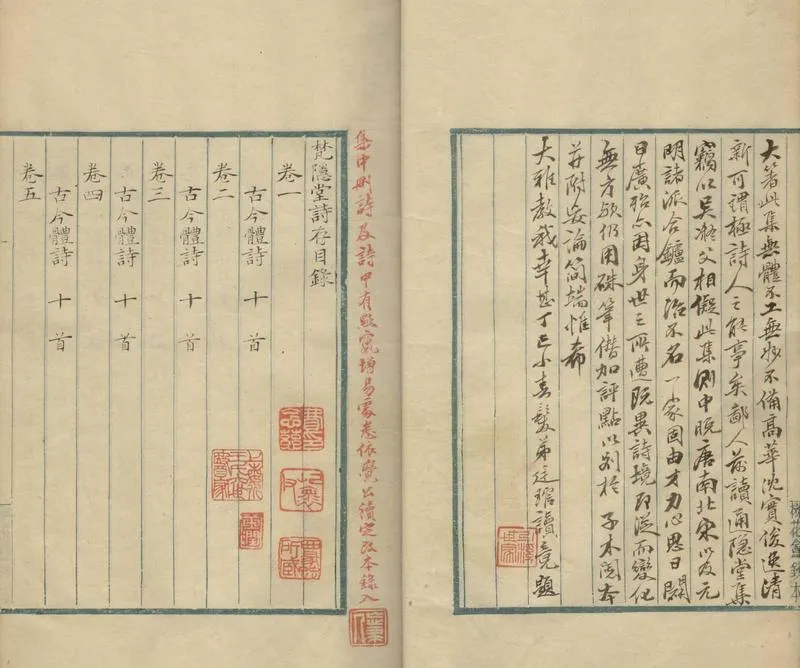 大箸此集無體不工無妙不備高華沈實俊逸清
新可謂極詩人之能事矣鄙人前讀通隱堂集
竊以吳父相儗此集則中晚唐南北宋以及元
明諸派合鑪而治不名一家固由才力心思日闢
日廣殆亦因身世之所遭既異詩境即從而變化
無方歟仍用硃筆僭加評點以別於子木閱本
并附妄論簡端惟希
大雅教我幸甚丁巳小春髮弟廷琯讀竟題
花盦鈔本
集中刪詩及詩中有點竄增易處悉依覺公續定改本錄入
梵隱堂詩存目錄
卷一
古今體詩 十 首
卷二
古今體詩 十 首
卷三
古今體詩 十 首
卷四
古今體詩 十 首
卷五